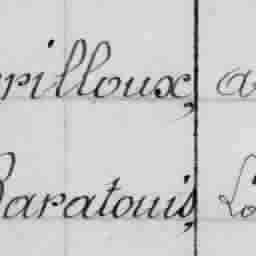 rilloux, a
Baratouis, Lo